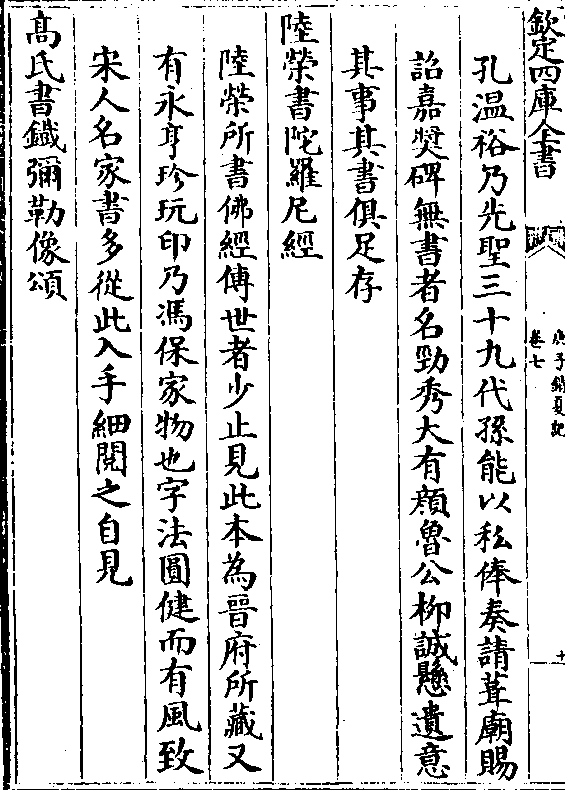 欽定四庫全書
庚子銷夏記
卷七
十
孔温裕乃先聖三十九代孫能以私俸奏請葺廟賜
詔嘉奬碑無書者名勁秀大有顔魯公柳誠懸遺意
其事其書俱足存
陸榮書陀羅尼經
陸榮所書佛經傳世者少止見此本為晉府所藏又
有永亨珍玩印乃馮保家物也字法圓健而有風致
宋人名家書多從此入手細閱之自見
髙氏書鐵彌勒像頌